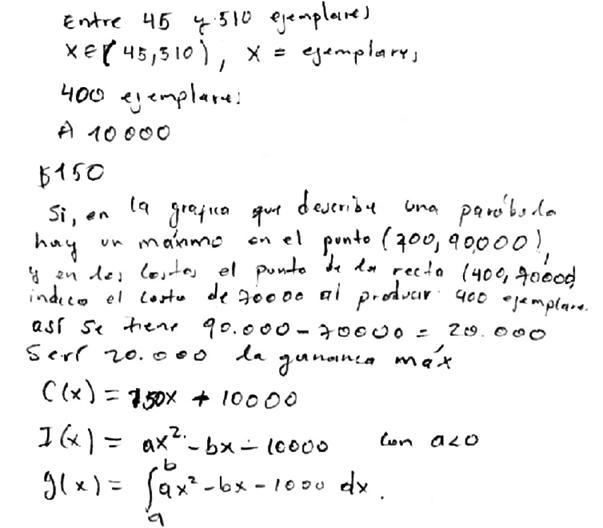 Entre 45 y 510 ejemplares
x ∈ (45,510), x = ejemplares
400 ejemplares
A 10000
$150
Si, en la grafica que describe una parábola
hay un máximo en el punto (200, 90,000),
y en los costos el punto de la recta (400, 70000)
indica el costo de 70000 al producir 400 ejemplare.
así se tiene 90.000 - 70000 = 20.000
Serí 20.000 la ganancia máx
C(x) = 150x + 10000
I(x) = ax² - bx - 10000 con a<0
g(x) = ∫_a^b ax² - bx - 1000 dx.